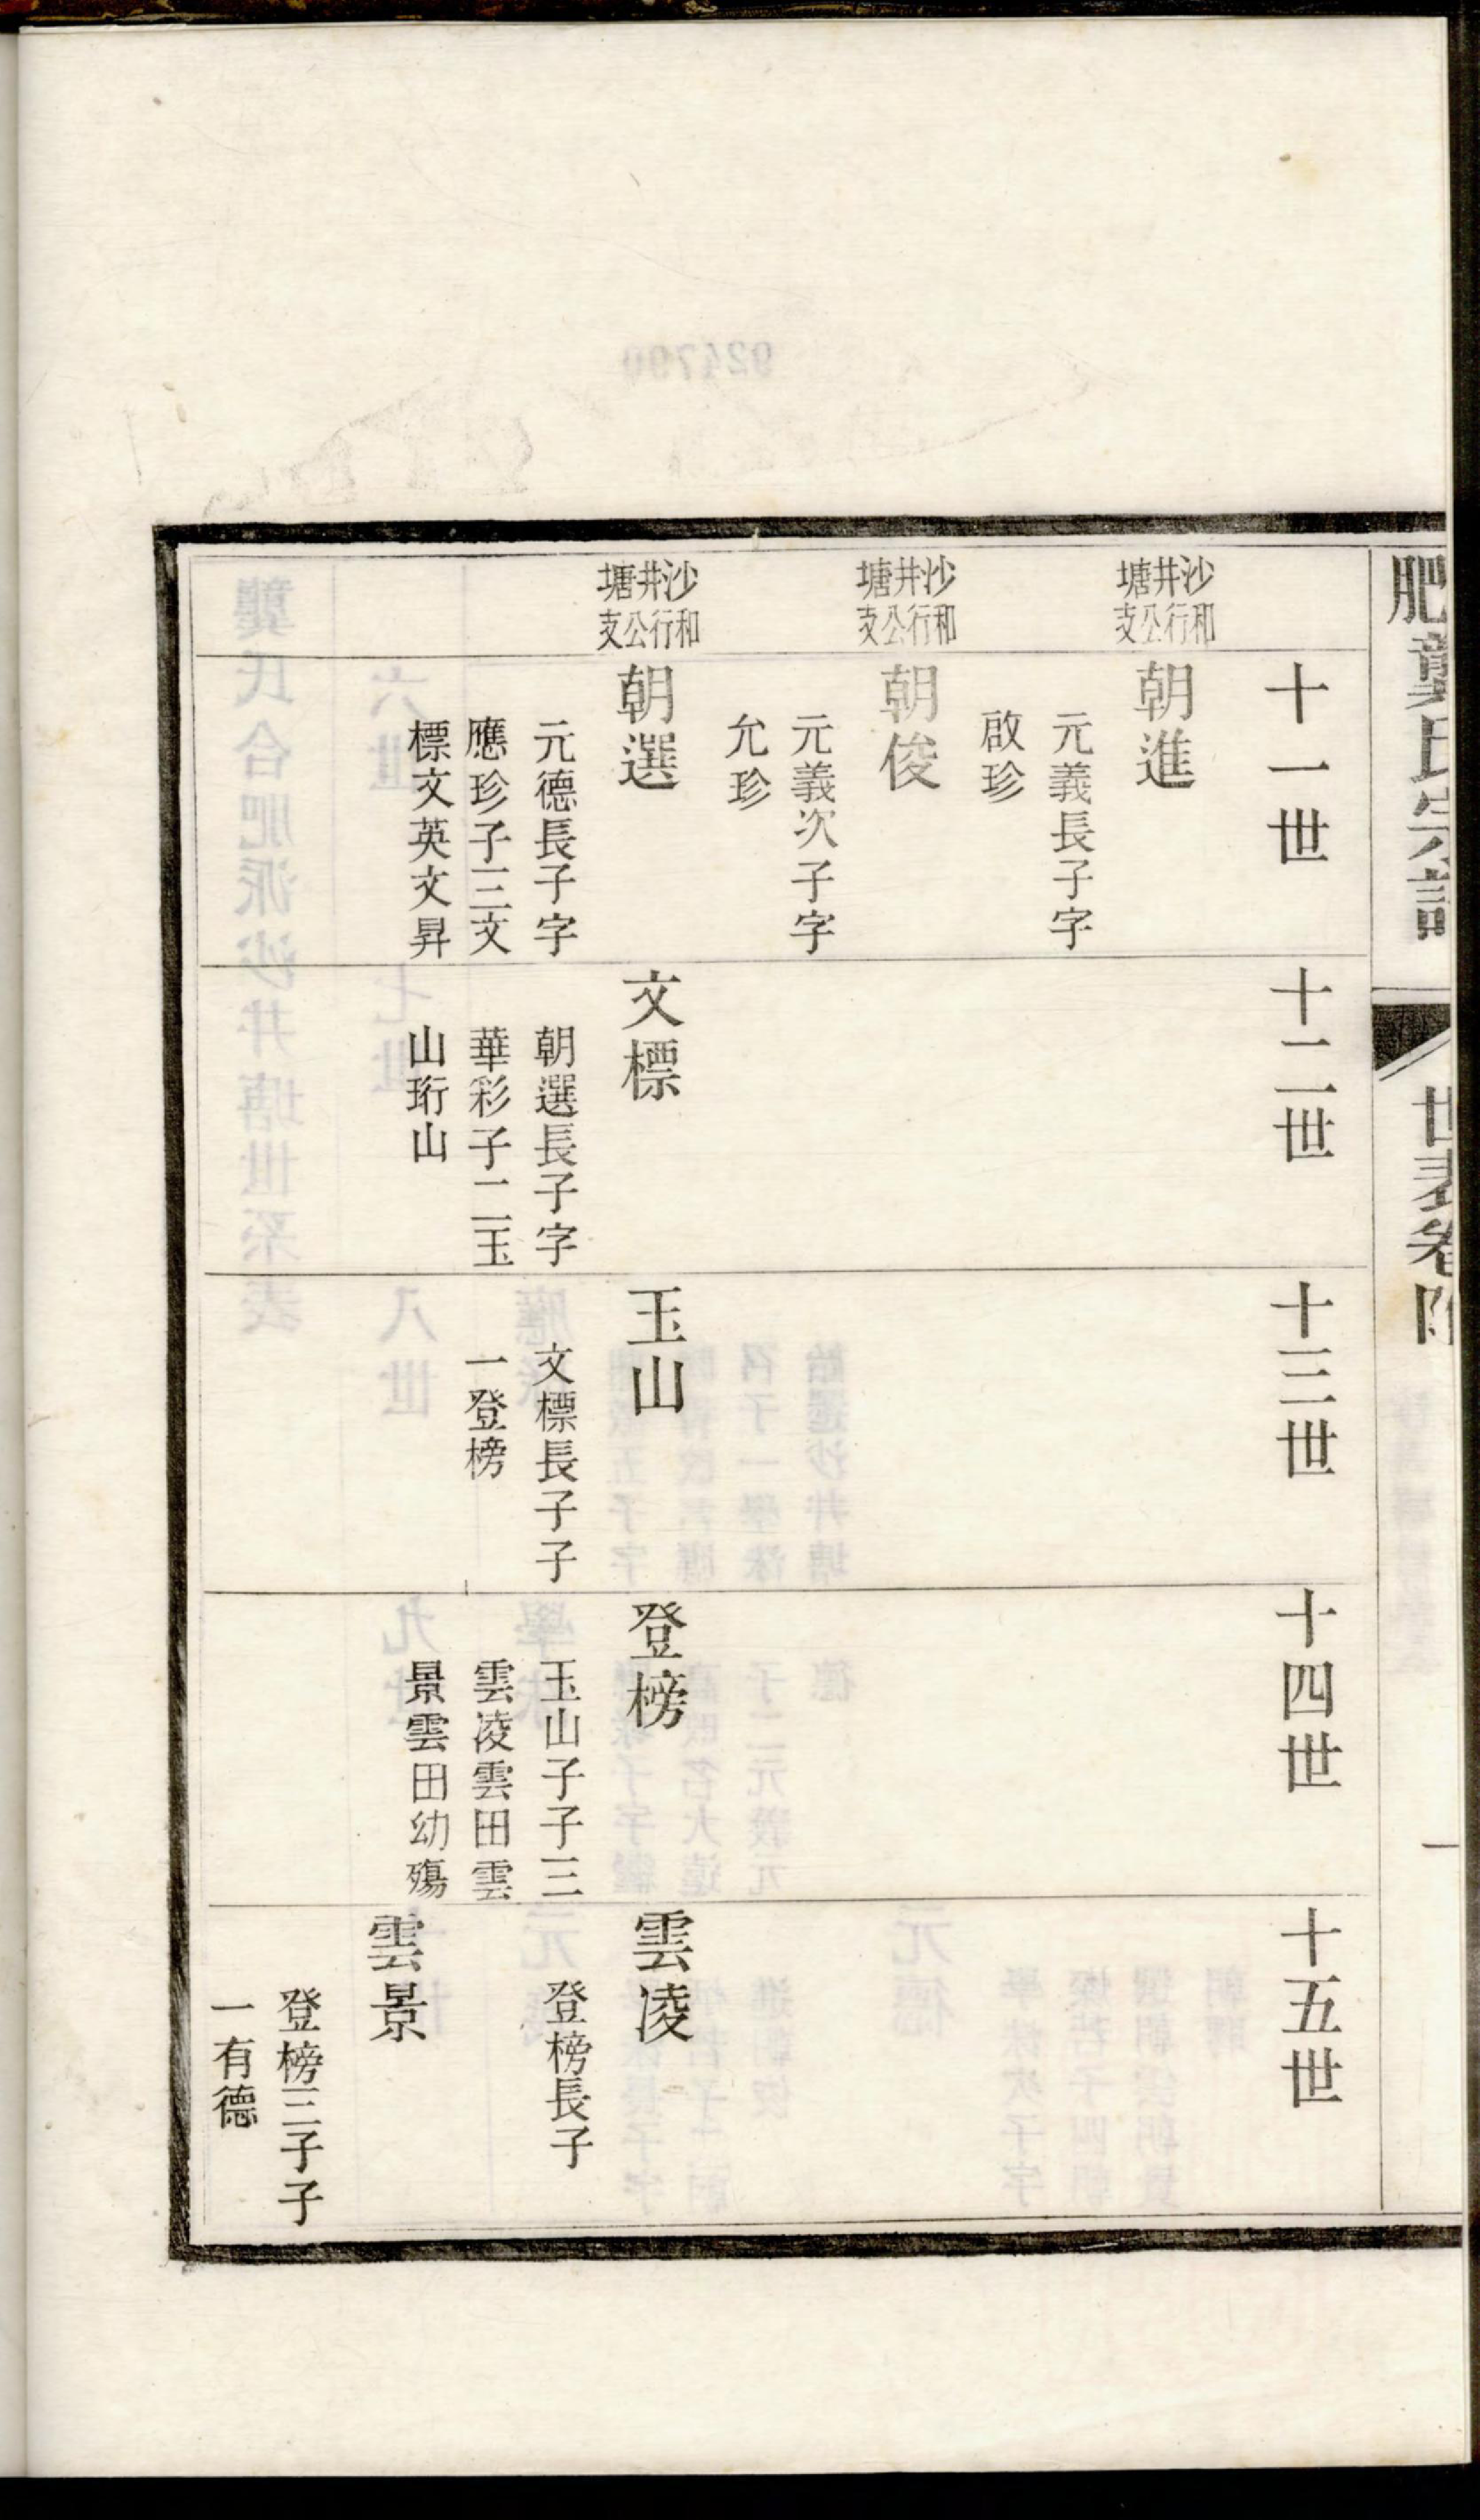 肥龔氏宗譜
世表卷
一
十一世
十二世
十三世
十四世
十五世
沙井塘
和行公支
朝進
元義長子字
啟珍
沙井塘
和行公支
朝俊
元義次子字
允珍
沙井塘
和行公支
朝選
元德長子字
應珍子三文
標文英文昇
文標
朝選長子字
華彩子二玉
山珩山
玉山
文標長子子
一登榜
登榜
玉山子子三
雲凌雲田雲
景雲田幼殤
雲凌
登榜長子
雲景
登榜三子子
一有德